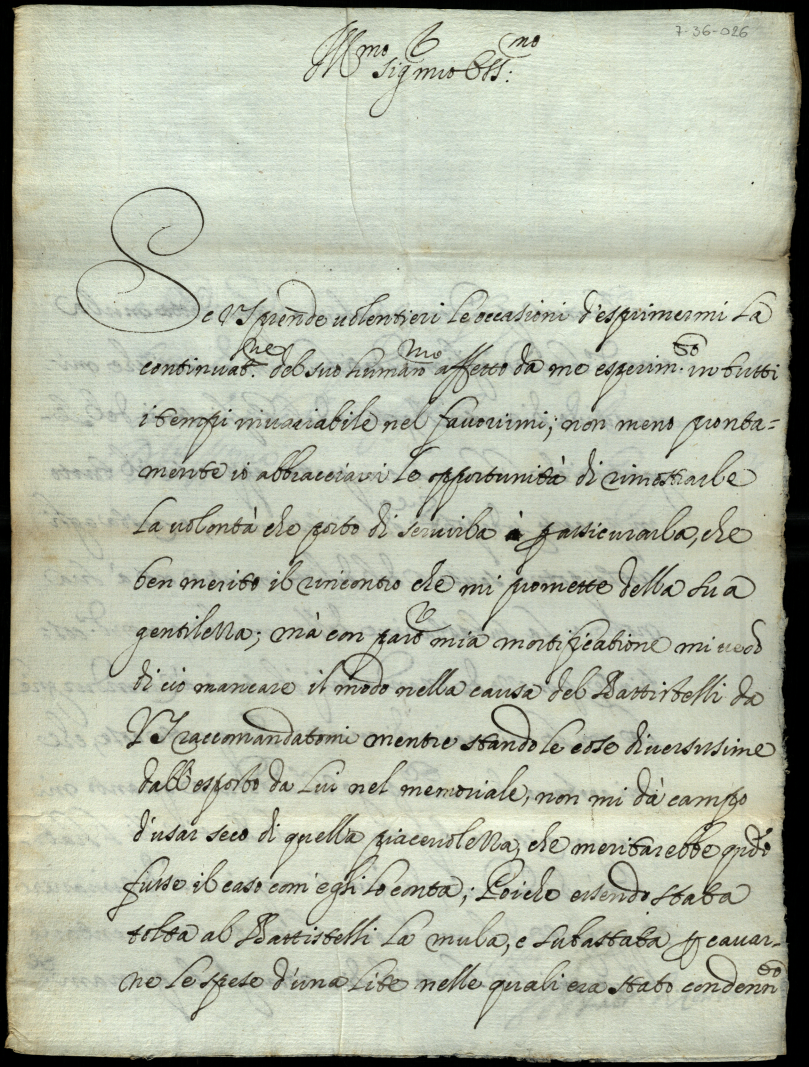 7-36-026
Ill.mo Sig.r mio Oss.mo
Se VS prende volentieri le occasioni d'esprimermi la
continuat.ne del suo human.mo affetto da me esperim.to in tutti
i tempi invariabile nel favorirmi; non meno pronta=
mente io abbracciarei le opportunità di rimostrarle
la volontà che porto di servirla, p assicurarla, che
ben merito il rincontro che mi promette della sua
gentilezza; mà con par.r mia mortificatione mi vedo
di ciò mancare il modo nella causa del Battistelli da
VS raccomandatomi mentre stando le cose diversissime
dall'esposto da lui nel memoriale, non mi dà campo
d'usar seco di quella piacevolezza, che meritarebbe qu.do
fusse il caso com'egli lo conta; Poiche essendo stata
tolta al Battistelli la mula, e subastata p cavar=
ne le spese d'una lite nelle quali era stato condenn.to